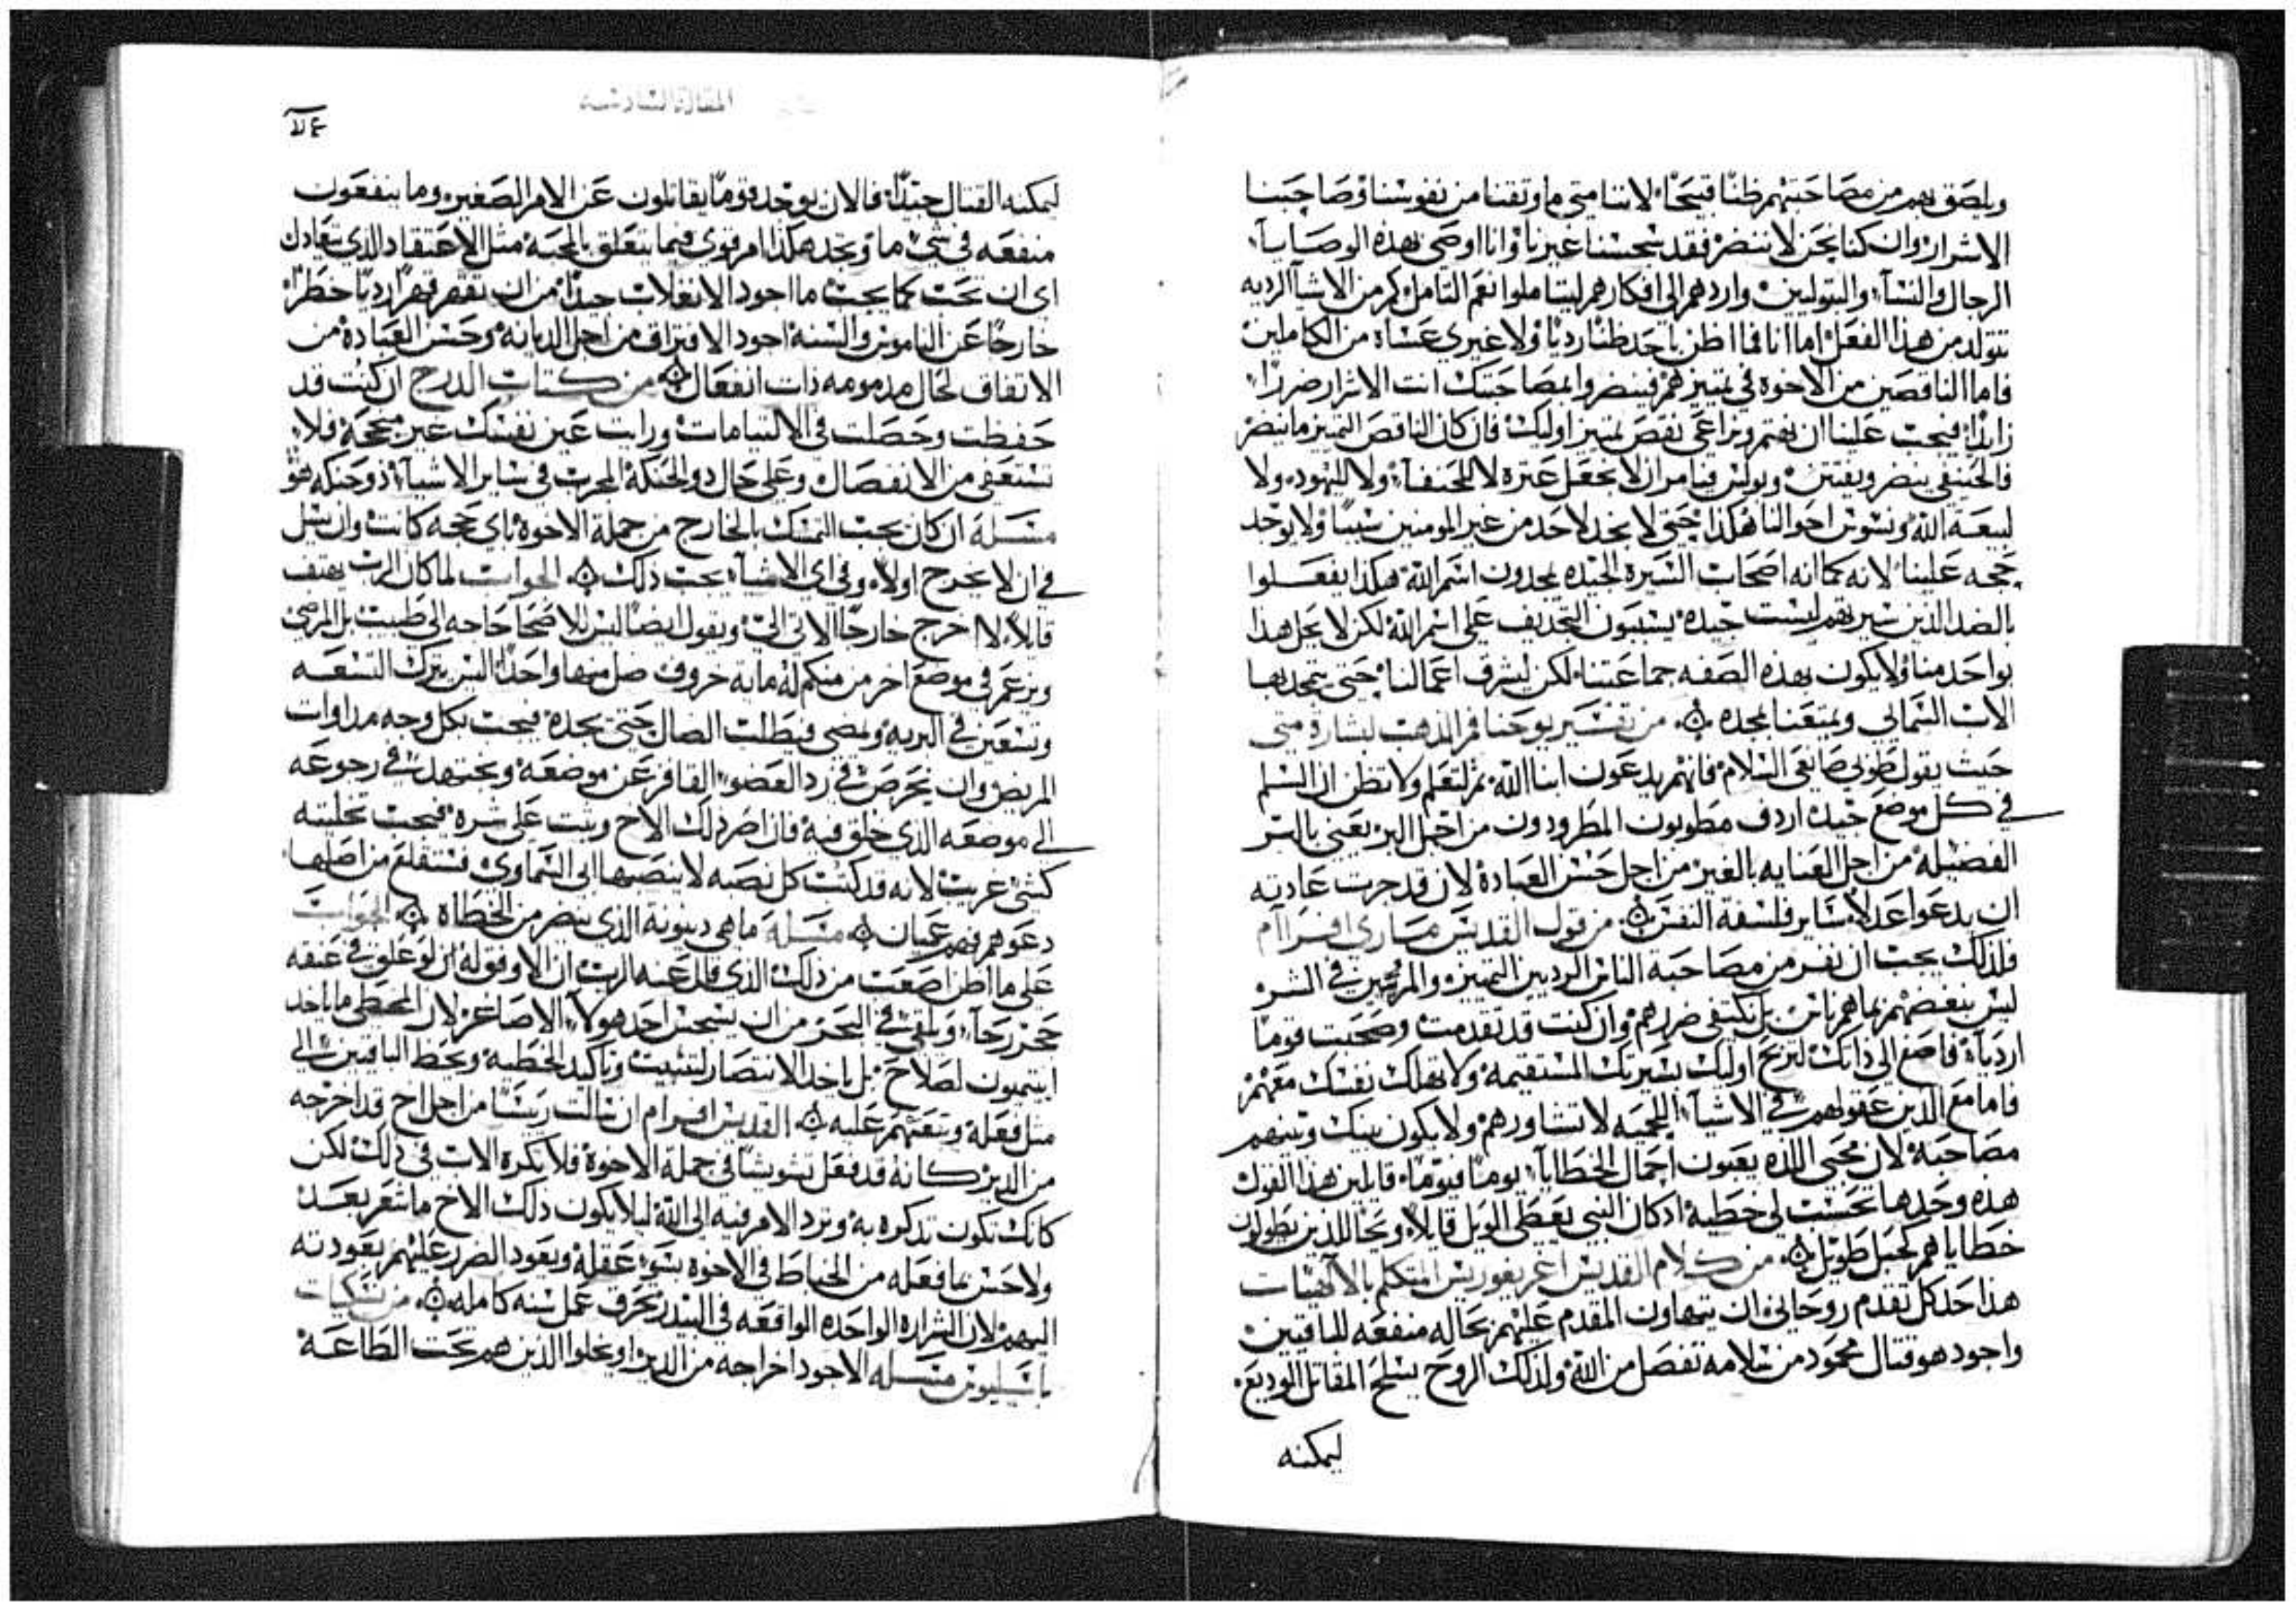 ويلصق بهم من مصاحبتهم ظنًا قبيحًا لاننا متى ما وثقنا من نفوسنا وصاحبنا
الاشرار وان كنا نحن لا ننضر فقد نسجس غيرنا وانا اوصي بهذه الوصايا
الرجال والنسآ والبتولين واردهم الى افكارهم ليتاملوا نعم التامل كم من الاشيآ الرديه
تتولد من هذا الفعل اما انا فما اظن باحد ظنًا رديًا ولا غيري عساه من الكاملين
فاما الناقصين من الاخوه في تمييزهم فينضروا لمصاحبتك انت الاشرار ضررًا
زايدًا فيجب علينا ان نهتم ونراعي نقص تمييز اوليك فان كان الناقص التمييز ما ينضر
فالحنيفي ينضر ويفتتن وبولس فيامر ان لا نجعل عتره لا للحنفآ ولا لليهود ولا
لبيعة الله ونسوس احوالنا هكذا حتى لا نجد لاحد من غير المومنين سببًا ولا يوجد
حجه علينا لانه كما انه اصحاب السيره الجيده يمجدون اسم الله هكذا يفعلوا
بالضد الذين سيرتهم ليست جيده يسببون التجديف على اسم الله لكن لا يحل هذا
بواحد منا ولا يكون بهذه الصفه جماعتنا لكن لتشرق اعمالنا حتى يتمجد بها
الاب السمايي ويمتعنا بمجده ۞ من تفسير يوحنا فم الذهب لبشارة متى
حيث يقول طوبى صانعي السلام فانهم يدعون ابنا الله ثم لتعلم ولا تظن ان السلم
في كل موضع جيد اردف مطوبون المطرودون من اجل البر يعني بالبر
الفضيلة من اجل العنايه بالغير من اجل حسن العبادة لان قد جرت عادته
ان يدعوا عدلاً ساير فلسفة النفس ۞ من قول القديس ماري افرآم
فلذلك يجب ان نفر من مصاحبة الناس الرديين التمييز والمرتجين في الشر
ليس ببغضتهم بما هم ناس بل نكتفي ضررهم وان كنت قد تقدمت وصحبت قومًا
اردياة فاصغ الى ذاتك لتربح اوليك بسيرتك المستقيمة ولا تهلك نفسك معهم
فاما مع الذين عقولهم في الاشيآ اللحميه لا تشاورهم ولا يكون بينك وبينهم
مصاحبة لان محبي اللذه يعبون احمال الخطايآ يومًا فيومًا قايلين هذا القول
هذه وحدها تحسب لي خطية اذ كان النبي يعطي الويل قايلاً ويحًا للذين يطولون
خطاياهم كحبل طويل ۞ من كلام القديس اغريغوريس المتكلم بالالهيات
هذا حد كل تقدم روحاني ان يتهاون المقدم عليهم بحاله منفعه للباقيين
واجود هو قتال محمود من سلامه تفصل من الله ولذلك الروح يسلح المقاتل الوديع
ليمكنه
المقاله السادسه
ليمكنه القتال جيدًا فالان يوجد قومًا يقاتلون عن الامر الصغير وما ينفعون
منفعه في شي ما وتجد هكذا امر قوي فيما يتعلق بالمحبة مثل الاعتقاد الذي تعادل
اي ان يحب كما يجب ما اجود الانغلاب جيدًا من ان تقهر قهرًا رديًا خطرًا
خارجًا عن الناموس والسنه اجود الافتراق من اجل الديانه وحسن العبادة من
الاتفاق لحال مذمومه ذات انفعال ۞ من كتاب الدرج ان كنت قد
حفظت وحصلت في الالتيامات ورايت عين نفسك غير مبحجة فلا
تستعفي من الانفصال وعلى حال ذو الحنكة المجرب في ساير الاشيآ ذو حنكه هو
مسلة ان كان يجب التمسك بالخارج من جملة الاخوه باي حجه كانت وان يسل
في ان لا يخرج اولاً وفي اي الاشيآ يجب ذلك ۞ الجواب لما كان الرب يهتف
قايلاً لا اخرج خارجًا الاتي الي ويقول ايضًا ليس للاصحا حاجه الى طبيب بل المرضى
ويزعم في موضع اخر من منكم له مايه خروف ضل منها واحدًا اليس يترك التسعه
وتسعين في البريه ويمضي فيطلب الضال حتى يجده فيجب بكل وجه مداوات
المريض وان نحرص في رد العضو القافز عن موضعه ونجتهد في رجوعه
الى موضعه الذي خلق فيه فان اصر ذلك الاخ وثبت على شره فيجب تخليته
كشي غريب لانه قد كتب كل نصبه لا ينصبها ابي السماوي فستقلع من اصلها
دعوهم فهم عميان ۞ مسلة ما هي دينونة الذي ينضر من الخطاة ۞ الجواب
على ما اظن اصعب من ذلك الذي قال عنه الرب ان الاوفق له ان لو علق في عنقه
حجر رحآ ويلقى في البحر من ان يسجس احد هولآ الاصاغر لان المخطي ما ياخذ
انتميون لصلاح بل ياخذ الانتصار لتثبيت وتاكيد الخطيه ويحظ الباقيين الى
مثل فعله وتنقتهم عليه ۞ القديس افرام ان سالت ريسًا من اجل اخ قد اخرجه
من الدير كانه قد فعل تشويشًا في جملة الاخوة فلا تكره الاب في ذلك لكن
كانك تكون تذكره به وترد الامر فيه الى الله ليلا يكون ذلك الاخ ما شعر بعد
ولا حس بما فعله من الخباط في الاخوه بسو عقله ويعود الضرر عليهم بعودته
اليهم لان الشراره الواحده الواقعه في البيدر تحرق عمل سنه كامله ۞ من نسكيات
باسيليوس مسله الاجود اخراجه من الدير او يخلوا الذين هم تحت الطاعة